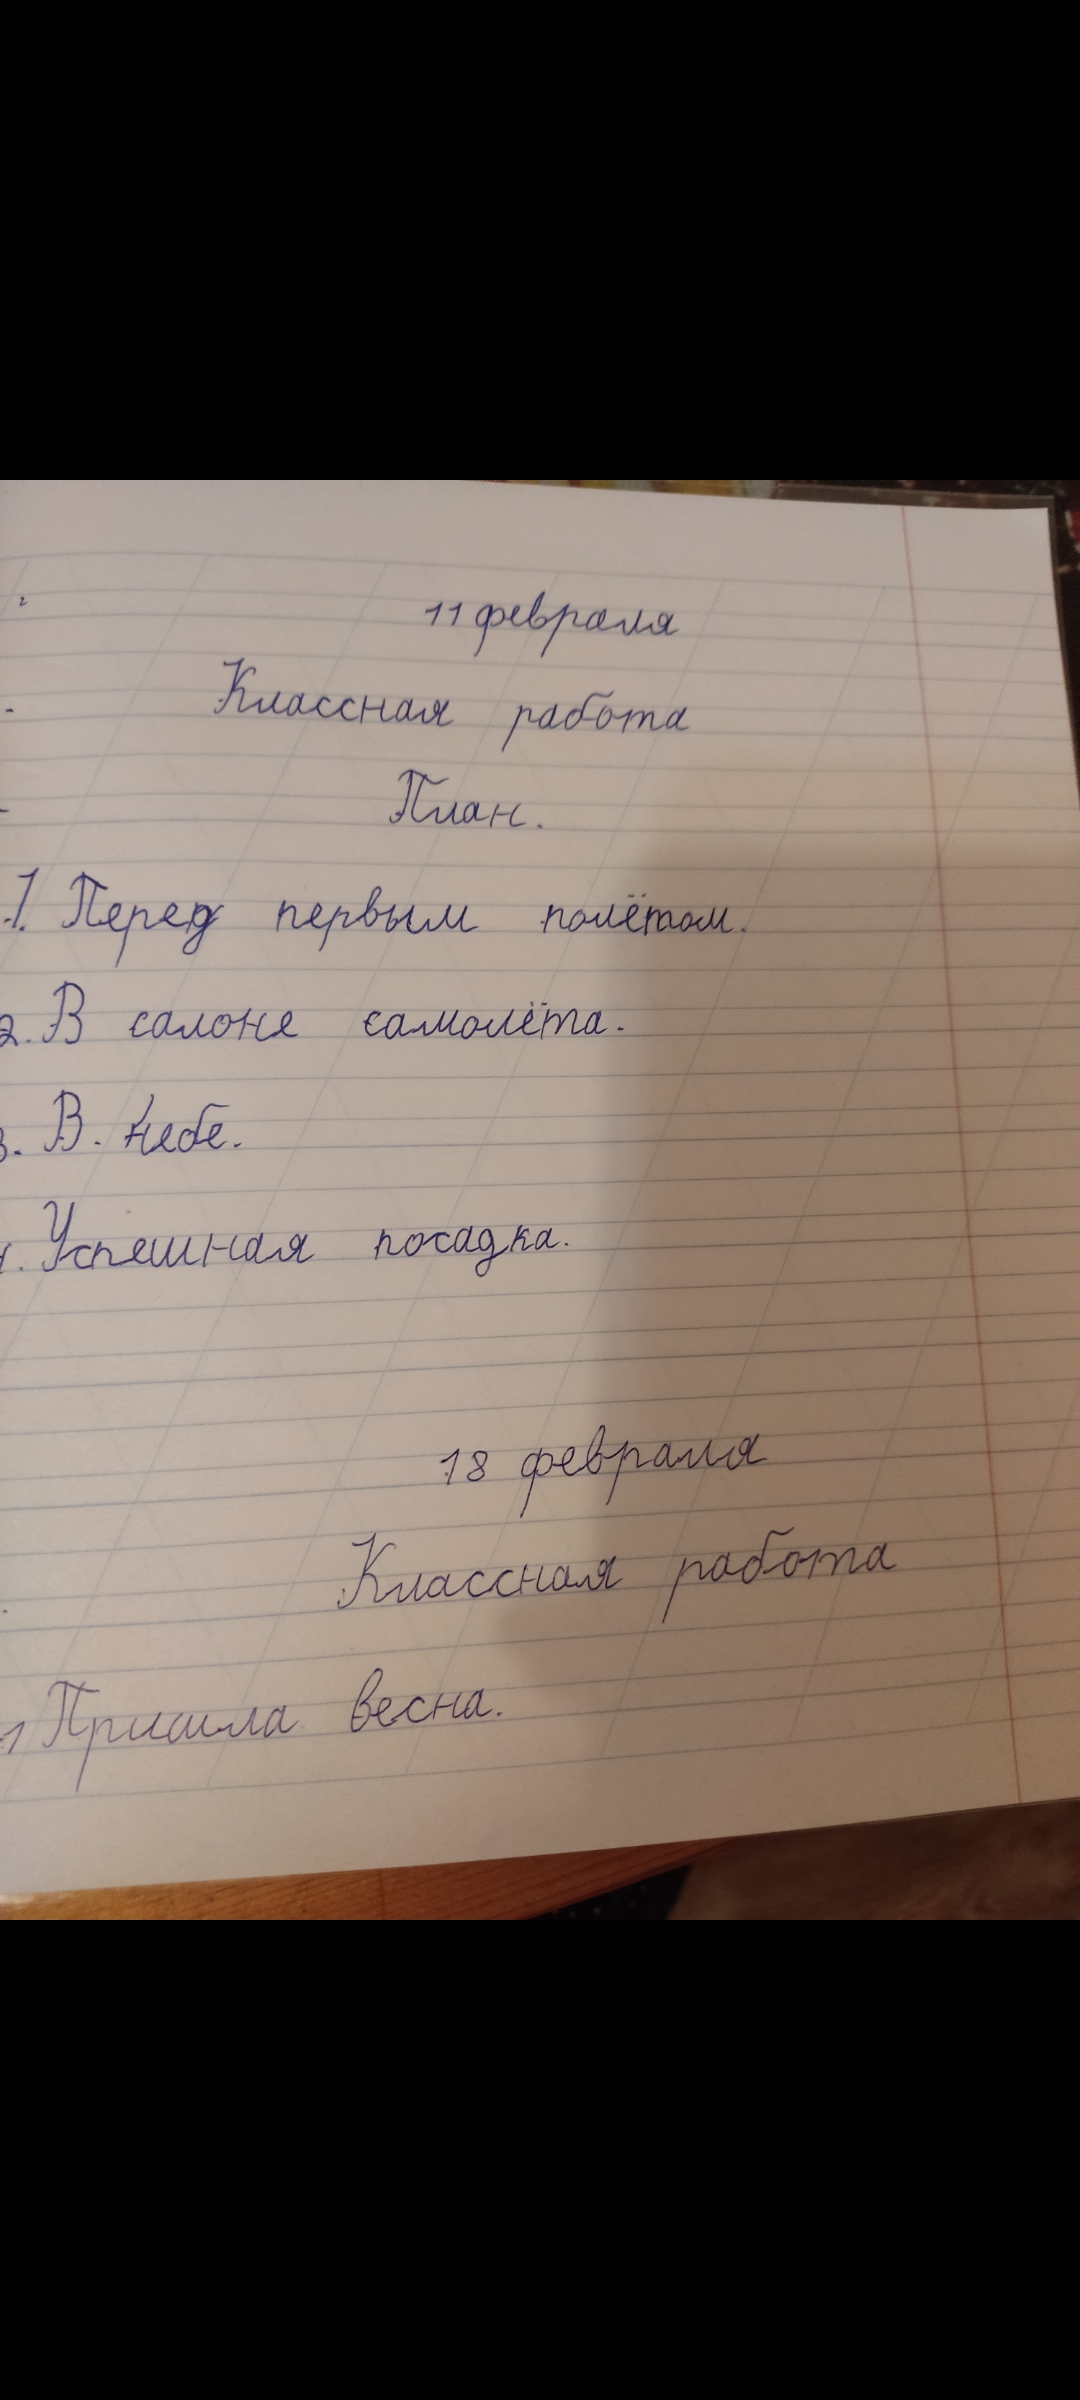 11 февраля
Классная работа
План.
1. Перед первым полётом.
2. В салоне самолёта.
3. В. небе.
4. Успешная посадка.
18 февраля
Классная работа
1 Пришла весна.